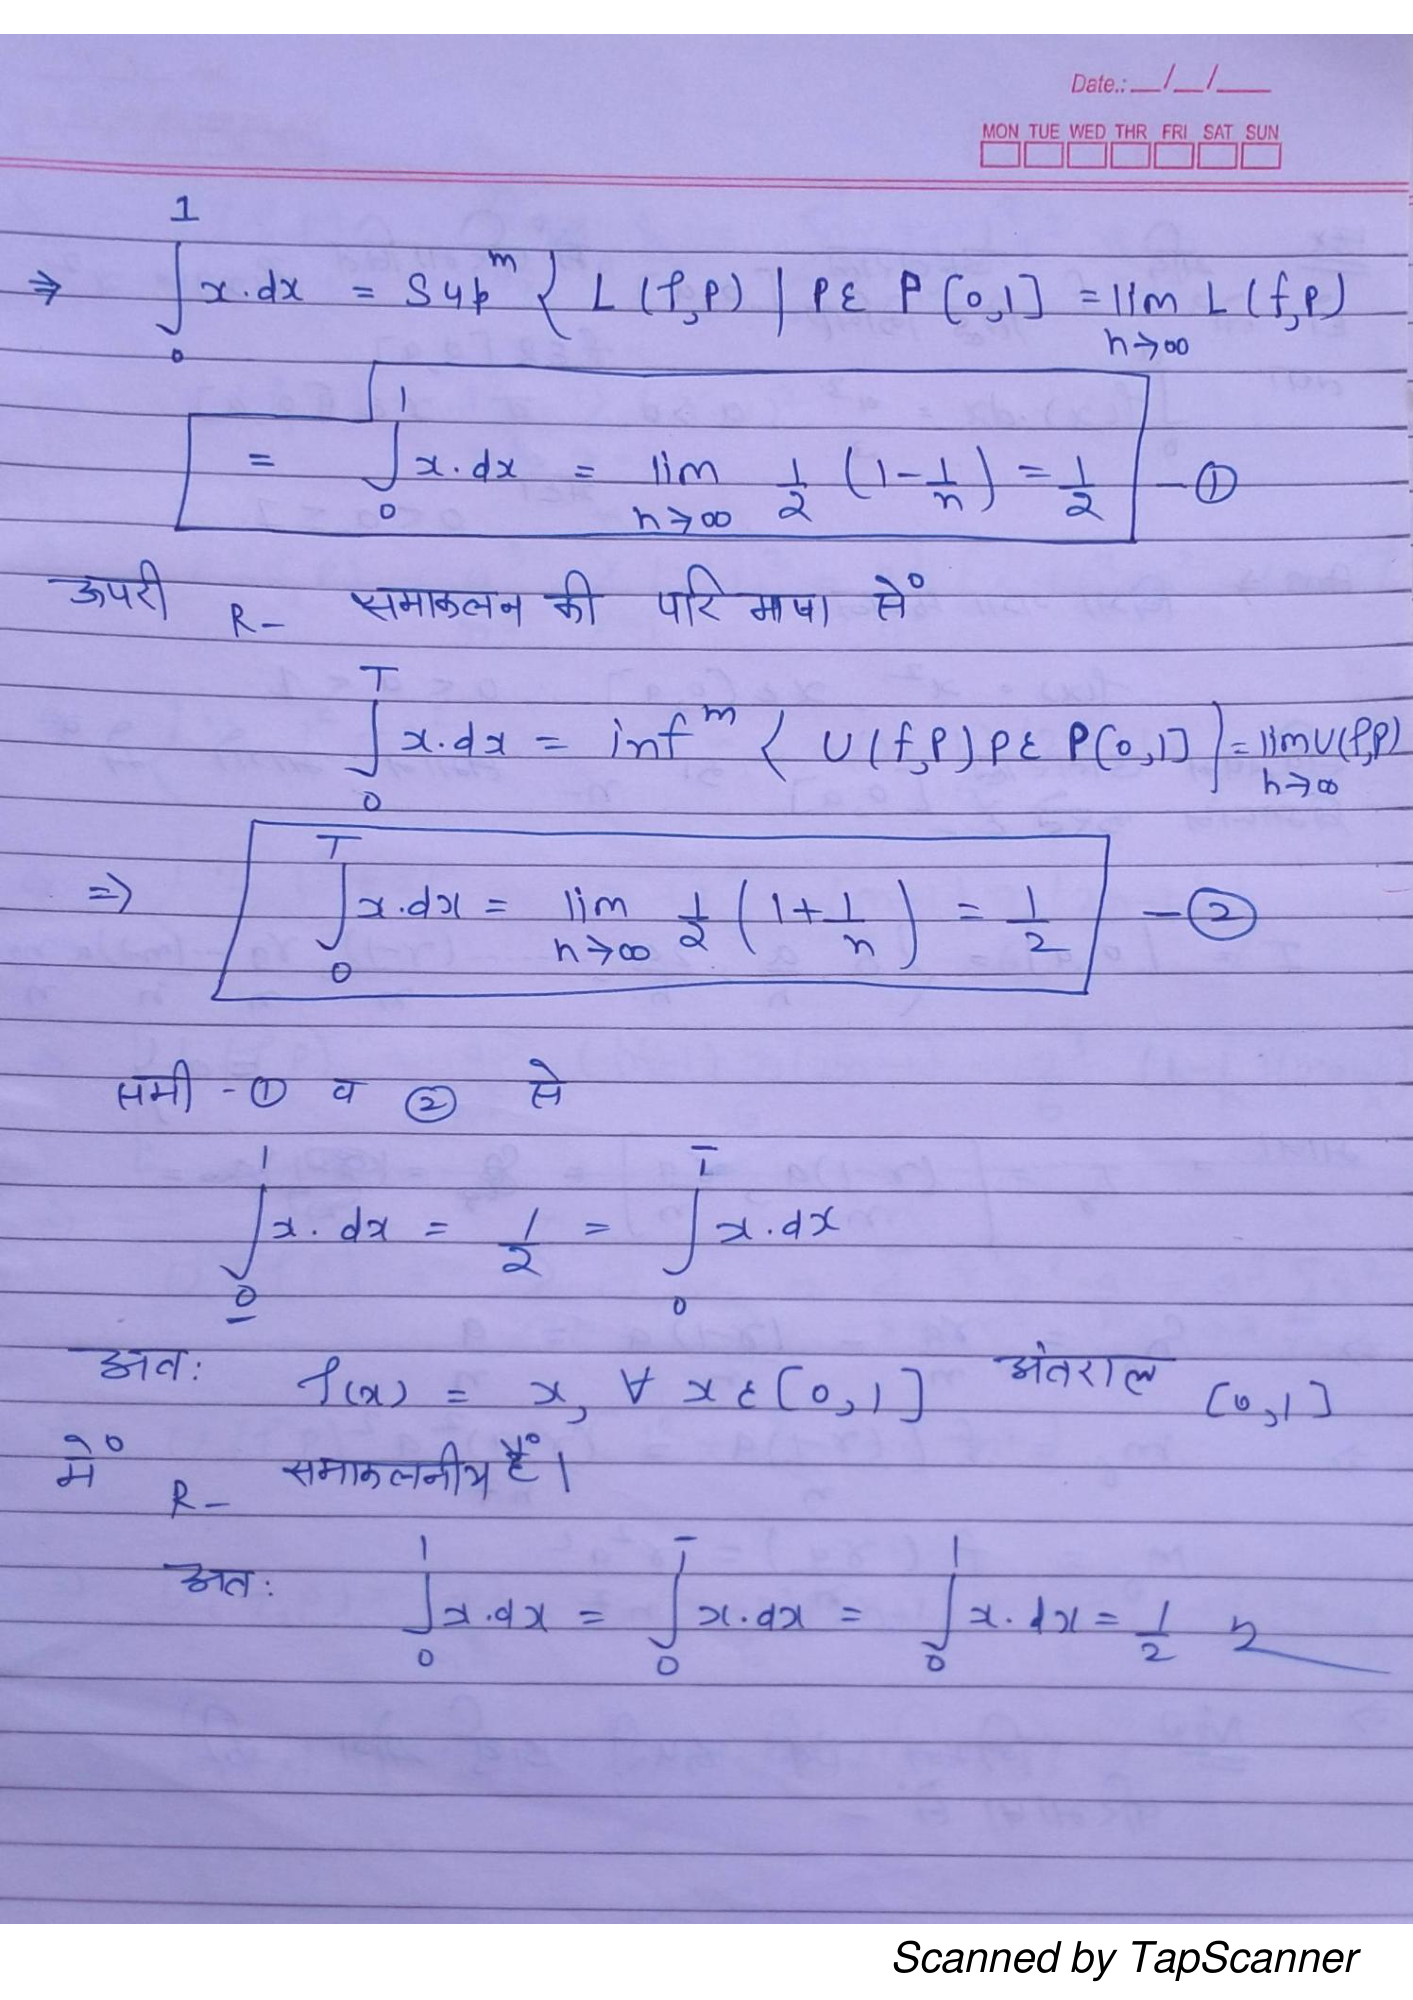 Date.: __/__/___
MON TUE WED THR FRI SAT SUN
⇒ ∫₀¹ x.dx = Supᵐ { L (f,P) | P ε P [0,1] = lim n→∞ L (f,P)
= ∫₀¹ x.dx = lim n→∞ 1/2 (1 - 1/n) = 1/2 - ①
ऊपरी R- समाकलन की परिभाषा से॰
∫₀^1̄ x.dx = infᵐ { U (f,P) P ε P [0,1] } = lim n→∞ U (f,P)
⇒ ∫₀^1̄ x.dx = lim n→∞ 1/2 (1 + 1/n) = 1/2 - ②
समी - ① व ② से
∫_0̲^1 x.dx = 1/2 = ∫₀^1̄ x.dx
अतः f(x) = x, ∀ x ε [0,1] अंतराल [0,1]
में॰ R- समाकलनीय हैं॰।
अतः ∫₀¹ x.dx = ∫₀^1̄ x.dx = ∫_0̲^1 x.dx = 1/2
Scanned by TapScanner